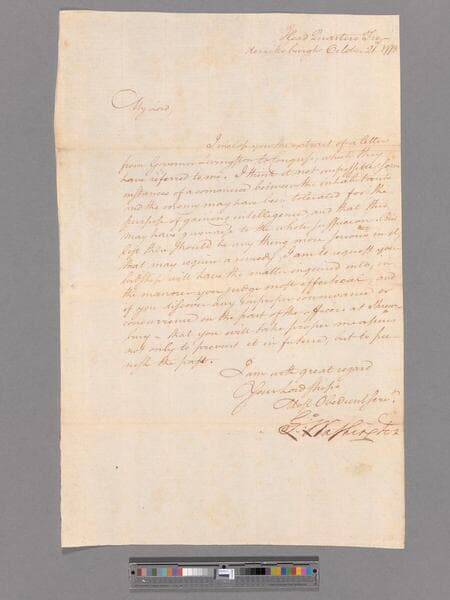 Head Quarters Fre-
dericksburgh October 21. 1778
My Lord,
I inclose you an extract of a letter
from Governor Livingston to Congress, which they
have refered to me. I think it not impossible, some
instances of a commerce between the inhabitants
and the enemy may have been tolerated for the
purpose of gaining intelligence, and that this
may have given rise to the whole suspicion. But
lest there should be any thing more serious in it,
that may require a remedy, I am to request your
Lordship will have the matter enquired into, in
the manner you judge most effectual; and
if you discover any improper connivance or
concurrence on the part of the officers at Shrews
bury - that you will take proper measures
not only to prevent it in future, but to pu-
nish the past.
I am with great regard
Your Lordships
Most Obedient serv.t
G:o Washington